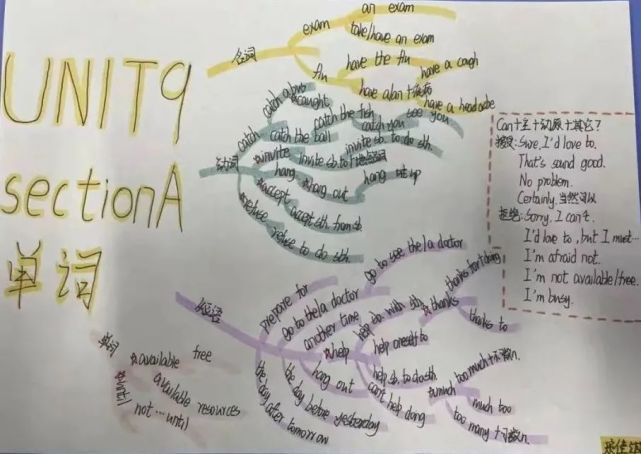 UNIT9
sectionA
单词
名词
exam
an exam
take/have an exam
flu
have the flu
have a cough
have a headache
动词
catch
catch a bus
caught
catch the fish
catch you
see you
catch the ball
invite
invite sb. to do sth.
hang
hang out
hang up
accept
accept sth. from sb.
refuse
refuse to do sth.
Can+主+动原+其它?
接受: Sure, I'd love to.
That's sound good.
No problem.
Certainly. 当然可以
拒绝: Sorry, I can't.
I'd love to, but I must...
I'm afraid not.
I'm not available/free.
I'm busy.
短语
prepare for
go to the/a doctor
go to see the/a doctor
another time
help
help sb. with sth.
help oneself to
help sb. to do sth.
can't help doing
thanks
thanks for doing
thanks to
hang out
the day before yesterday
the day after tomorrow
much
too much+不可数n.
much too
too many+可数n.
available
free
available resources
not...until